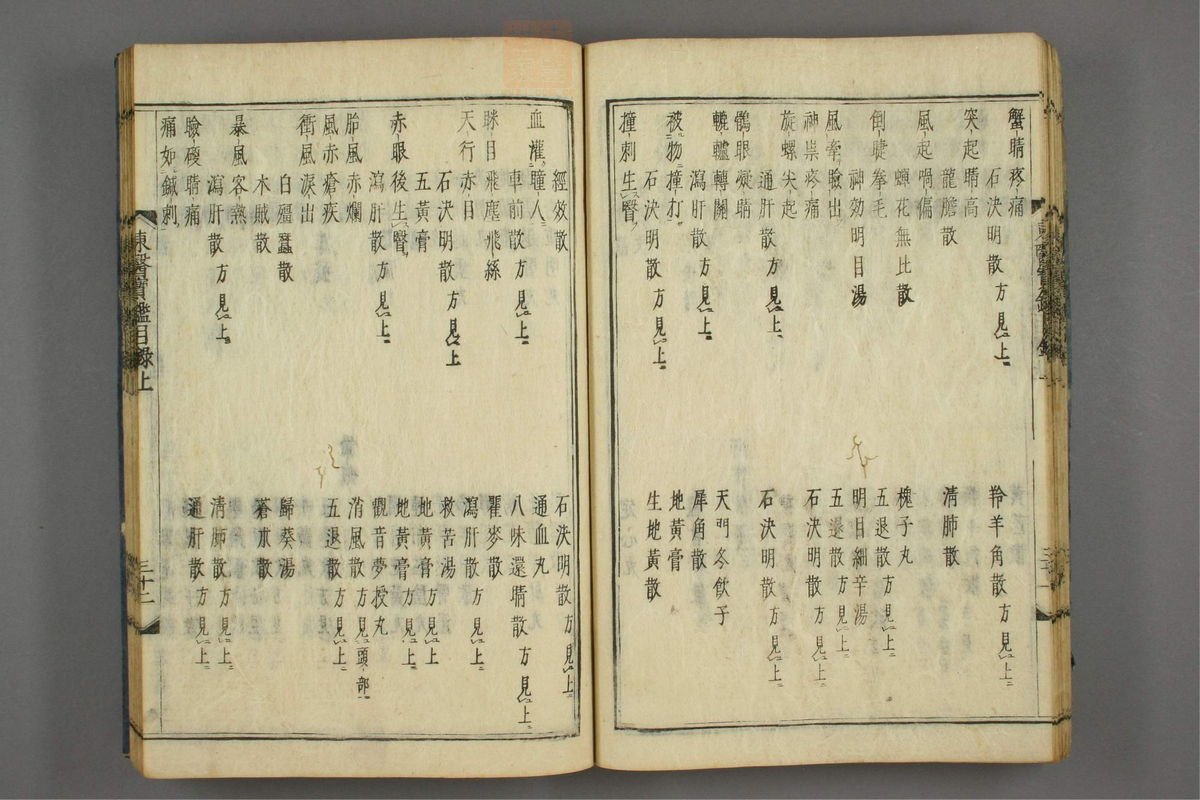 蟹睛疼痛
石決明散方見上
羚羊角散方見上
突起睛高
龍膽散
清肺散
風起喎偏
蟬花無比散
槐子丸
倒睫拳毛
五退散方見上
神效明目湯
明目細辛湯
風牽瞼出
五退散方見上
神祟疼痛
石決明散方見上
旋螺尖起
通肝散
石決明散方見上
鶻眼凝睛
轆轤轉關
瀉肝散方見上
天門冬飲子
犀角散
被物撞打
石決明散方見上
地黃膏
撞刺生瞖
生地黃散
經效散
石決明散方見上
血灌瞳人
車前散方見上
通血丸
八味還睛散方見上
眯目飛塵飛絲
瞿麥散
天行赤目
石決明散方見上
瀉肝散方見上
五黃膏
救苦湯
赤眼後生瞖
地黃膏方見上
瀉肝散方見上
地黃膏方見上
胎風赤爛
觀音夢授丸
風赤瘡疾
消風散方見頭部
五退散方見上
衝風淚出
白殭蠶散
歸葵湯
木賊散
蒼朮散
暴風客熱
瀉肝散方見上
清肺散方見上
瞼硬睛痛
通肝散方見上
痛如鍼刺
東醫寶鑑目錄上
三十二